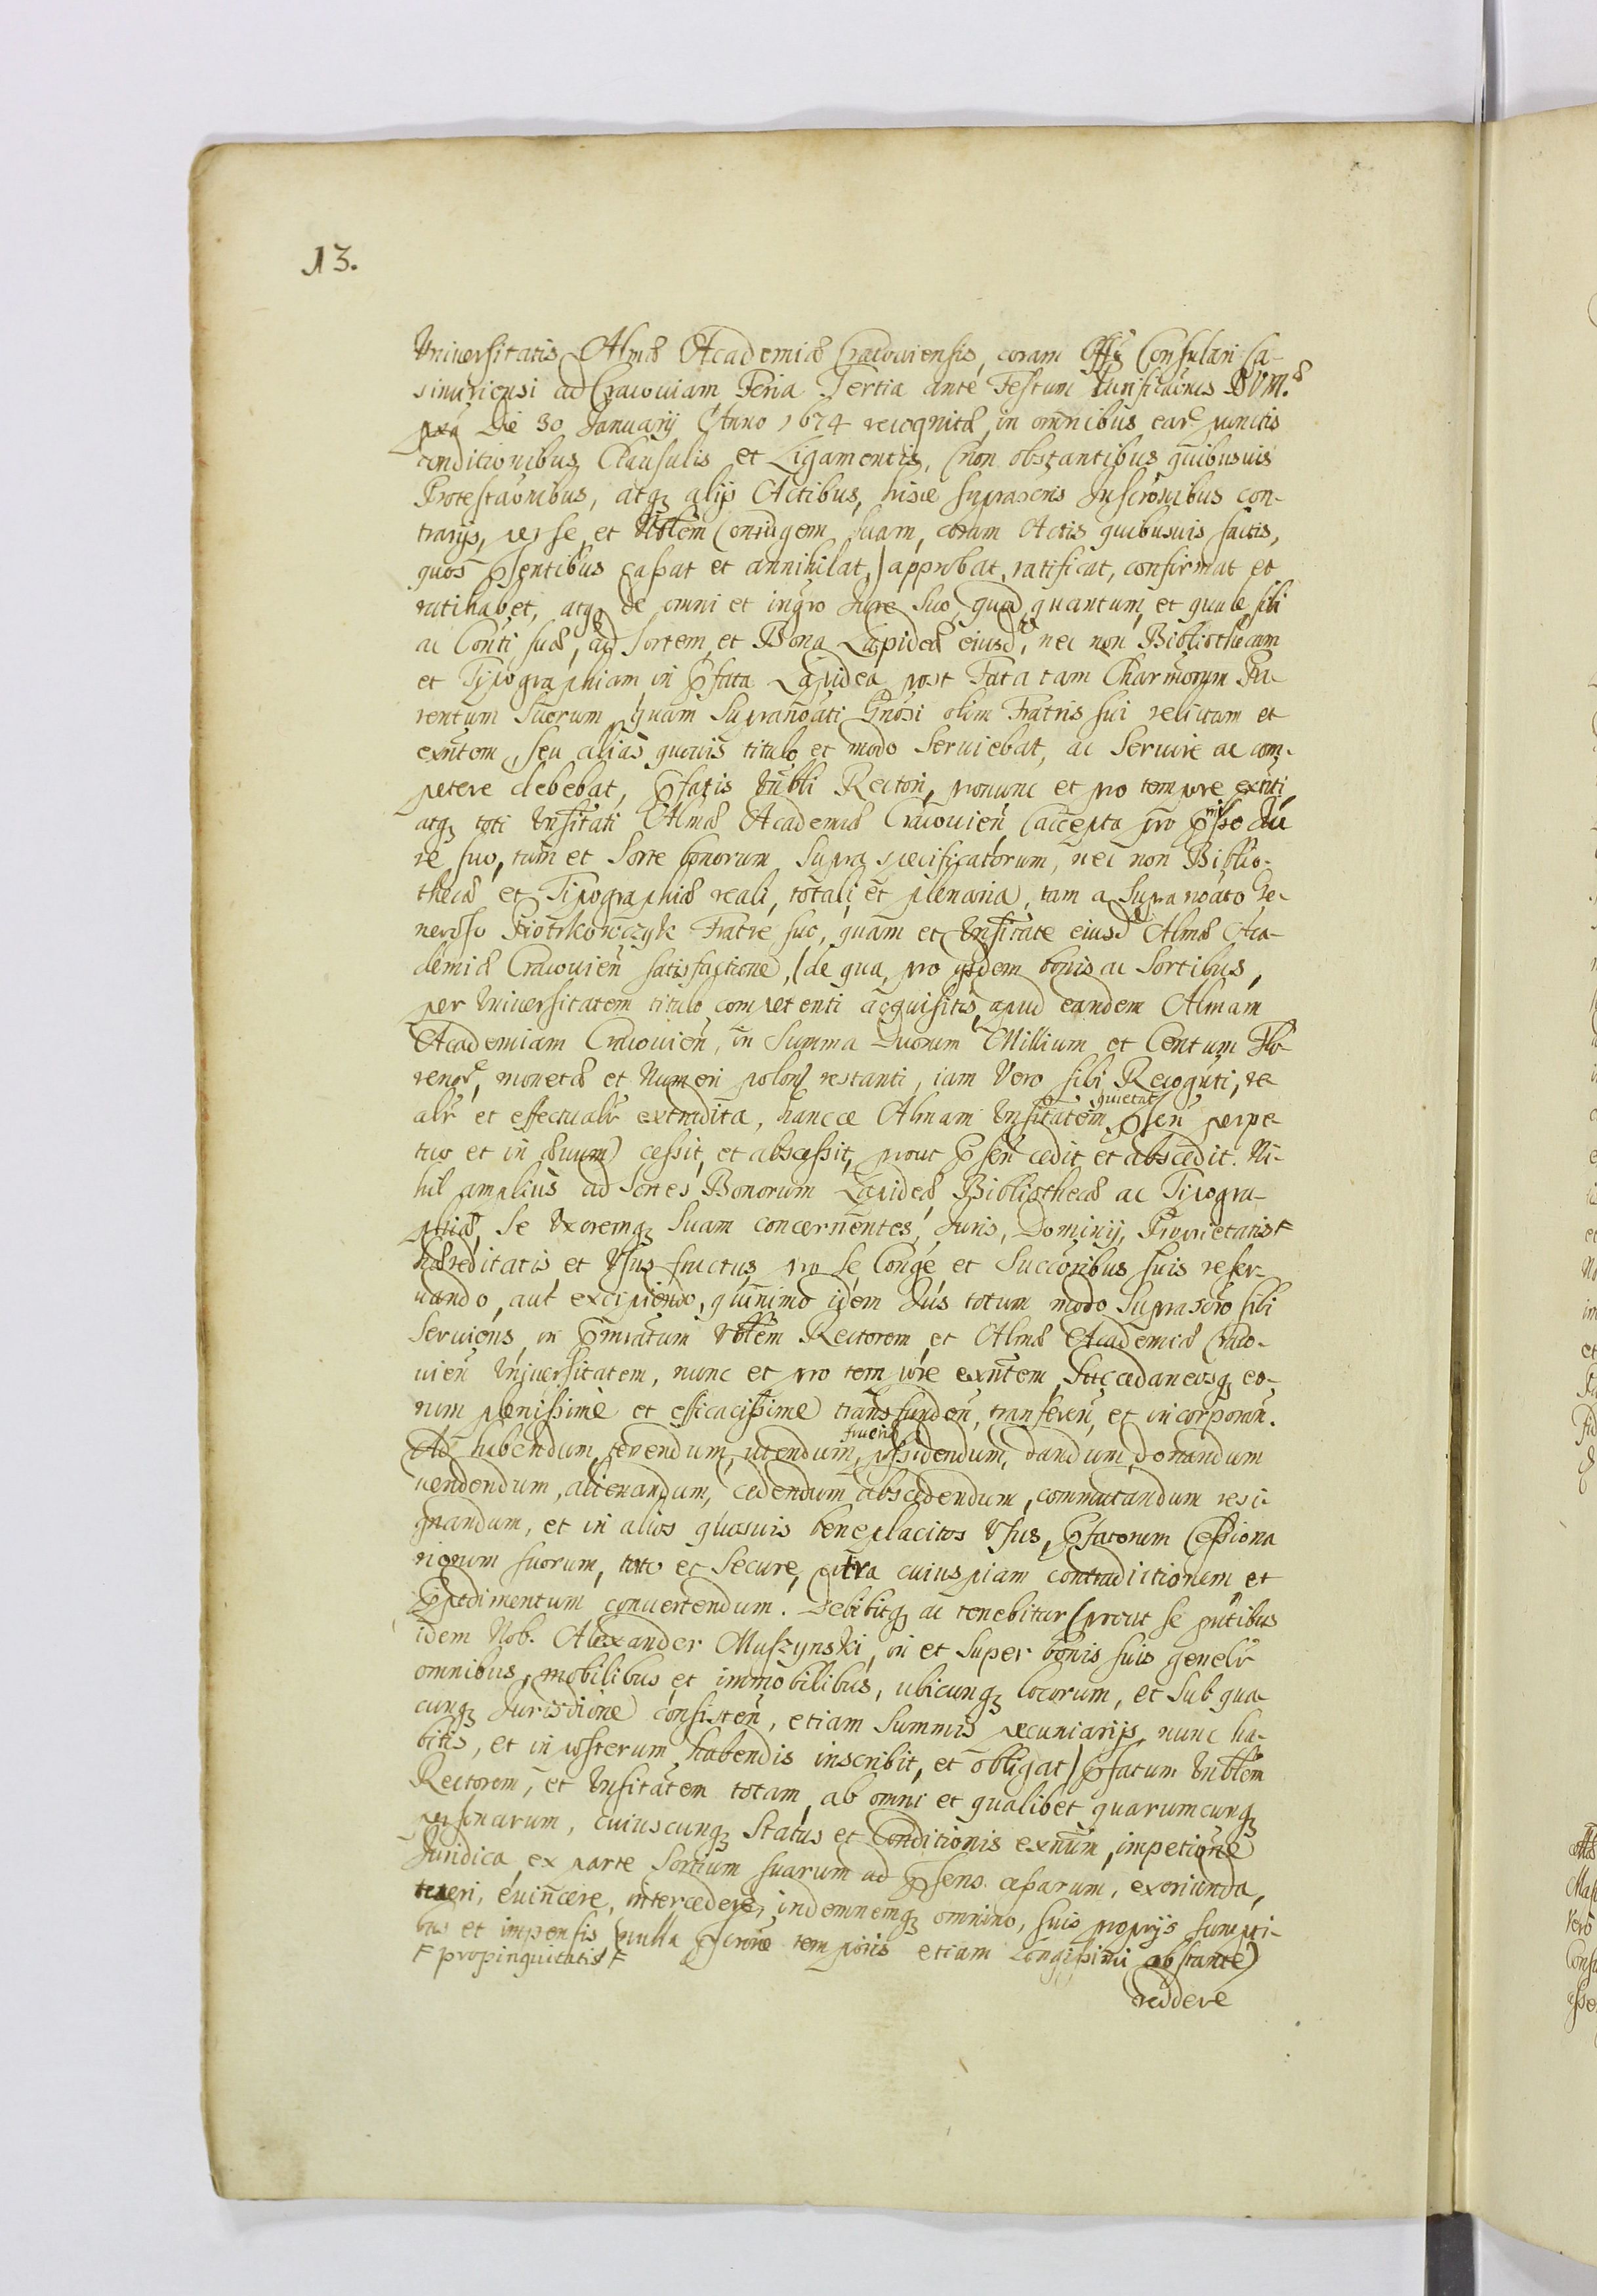 13.
Universitatis Almæ Academiæ Cracoviensis, coram Offo Consulari Ca-
simiriensi ad Cracoviam, Feria Tertia ante Festum Purificaõnis BVM.æ
pxã Die 30 Januarij Anno 1674 recognitæ, in omnibus ear. punctis
conditionibus, Clausulis et Ligamentis, (non obstantibus quibusvis
Protestaõnibus, atq alijs Actibus, hisce suprascris Inscrõnibus con-
trarijs, per se, et Nblem Coniugem suam, coram Actis quibusvis factis,
quos pñsentibus cassat et annihilat,) approbat, ratificat, confirmat et
ratihabet, atq de omni et integro Jure suo, quod, quantum, et quale sibi
ac Conti suæ, ad Sortem, et Bona Lapideæ eiusd, nec non Bibliothecam
et Typographiam in pfata Lapidea post Fata tam Charmorum Pa-
rentum Suorum, quam Supranõati Gnõsi olim Fratris sui relictam et
exñtem, seu alias quovis titulo et modo Serviebat, ac Servire ac com-
petere debebat, pfatis Nbli Rectori, pronunc et pro tempore exñti,
atq toti Unsitati Almæ Academiæ Cracovieñ (accepta pro pmisso Ju
re suo, tum et Sorte bonorum supra specificatorum, nec non Biblio-
thecæ et Tipographiæ reali, totali, et plenaria, tam a Supranõato Ge-
neroso Piotrkowczyk Fratre suo, quam et Unsitate eiusd Almæ Aca-
demiæ Cracovieñ satisfactione, (de qua, pro ijsdem bonis ac Sortibus,
per Universitatem titulo competenti acquisitis, apud eandem Almam
Academiam Cracovieñ, in Summa Duorum Millium et Centum Flo-
renor, monetæ et Numeri polon restanti, iam Vero sibi Recognti, re
alr et effectualr extradita, hancce Almam Unsitatem quietat pseñ perpe-
tuo et in ævum) cessit, et abscessit, prout pseñ cedit et abscedit. Ni-
hil amplius ad Sortes Bonorum Lapideæ, Bibliothecæ ac Tipogra-
phiæ, Se Uxoremq Suam concernentes, Juris, Dominij, Proprietatis F
hæreditatis, et Usus fructus, pro se, Conge, et Succoribus suis reser-
vando, aut excipiendo, quinimo idem Jus totum modo Suprascro sibi
Serviens, in pmiatum Nblem Rectorem, et Almæ Academiæ Craco-
vieñ Universitatem, nunc et pro tempore exñtem, Succedaneosq eo-
rum plenissime et efficacissime transfundeñ, transfereñ, et incorporañ.
Ad habendum, tenendum, utendum, fruend possidendum, dandum, donandum
vendendum, alienandum, cedendum abscedendum, commutandum resi-
gnandum, et in alios quosvis beneplacitos Usus, pfatorum Cessiona
riorum suorum, tuto et Secure, citra cuiuspiam contradictionem et
Impedimentum convertendum. Debebitq ac tenebitur (prout se pñtibus
idem Nob. Alexander Muszynski, in et super bonis suis genelr
omnibus, mobilibus et immobilibus, ubicunq locorum, et sub qua
cunq Jurisdione consisteñ, etiam Summis pecuniarijs, nunc ha-
bitis, et in posterum habendis inscribit, et obligat) pfatum Nblem
Rectorem, et Unsitatem totam, ab omni et qualibet quarumcunq
personarum, cuiuscunq Status et Conditionis exñum, impetione
Juridica, ex parte Sortium suarum ad pseñs. cessarum, exoriunda,
tueri, evincere, intercedere, indemnemq omnino, suis proprijs sumpti-
bus et impensis (nulla pscrõne temporis etiam Longissimi obstante)
F propinquitatis F
reddere